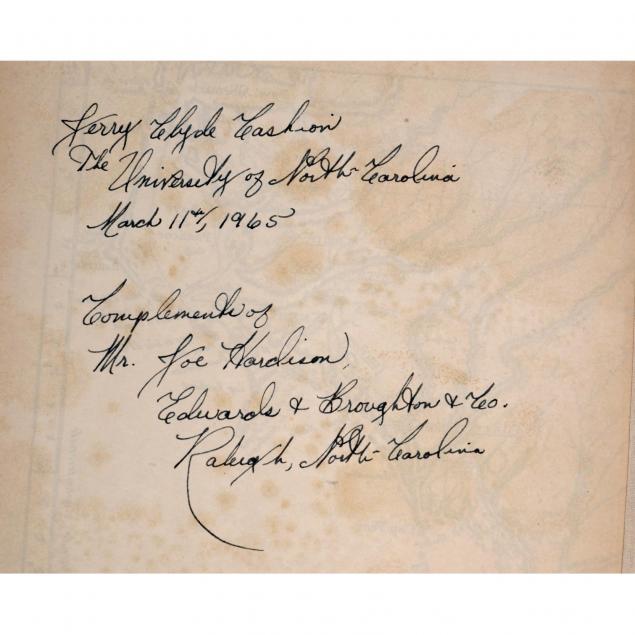 Jerry Clyde Cashion
The
University of North Carolina
March 11th, 1965
Complements of
Mr. Joe Hardison,
Edwards & Broughton & Co.
Raleigh, North Carolina